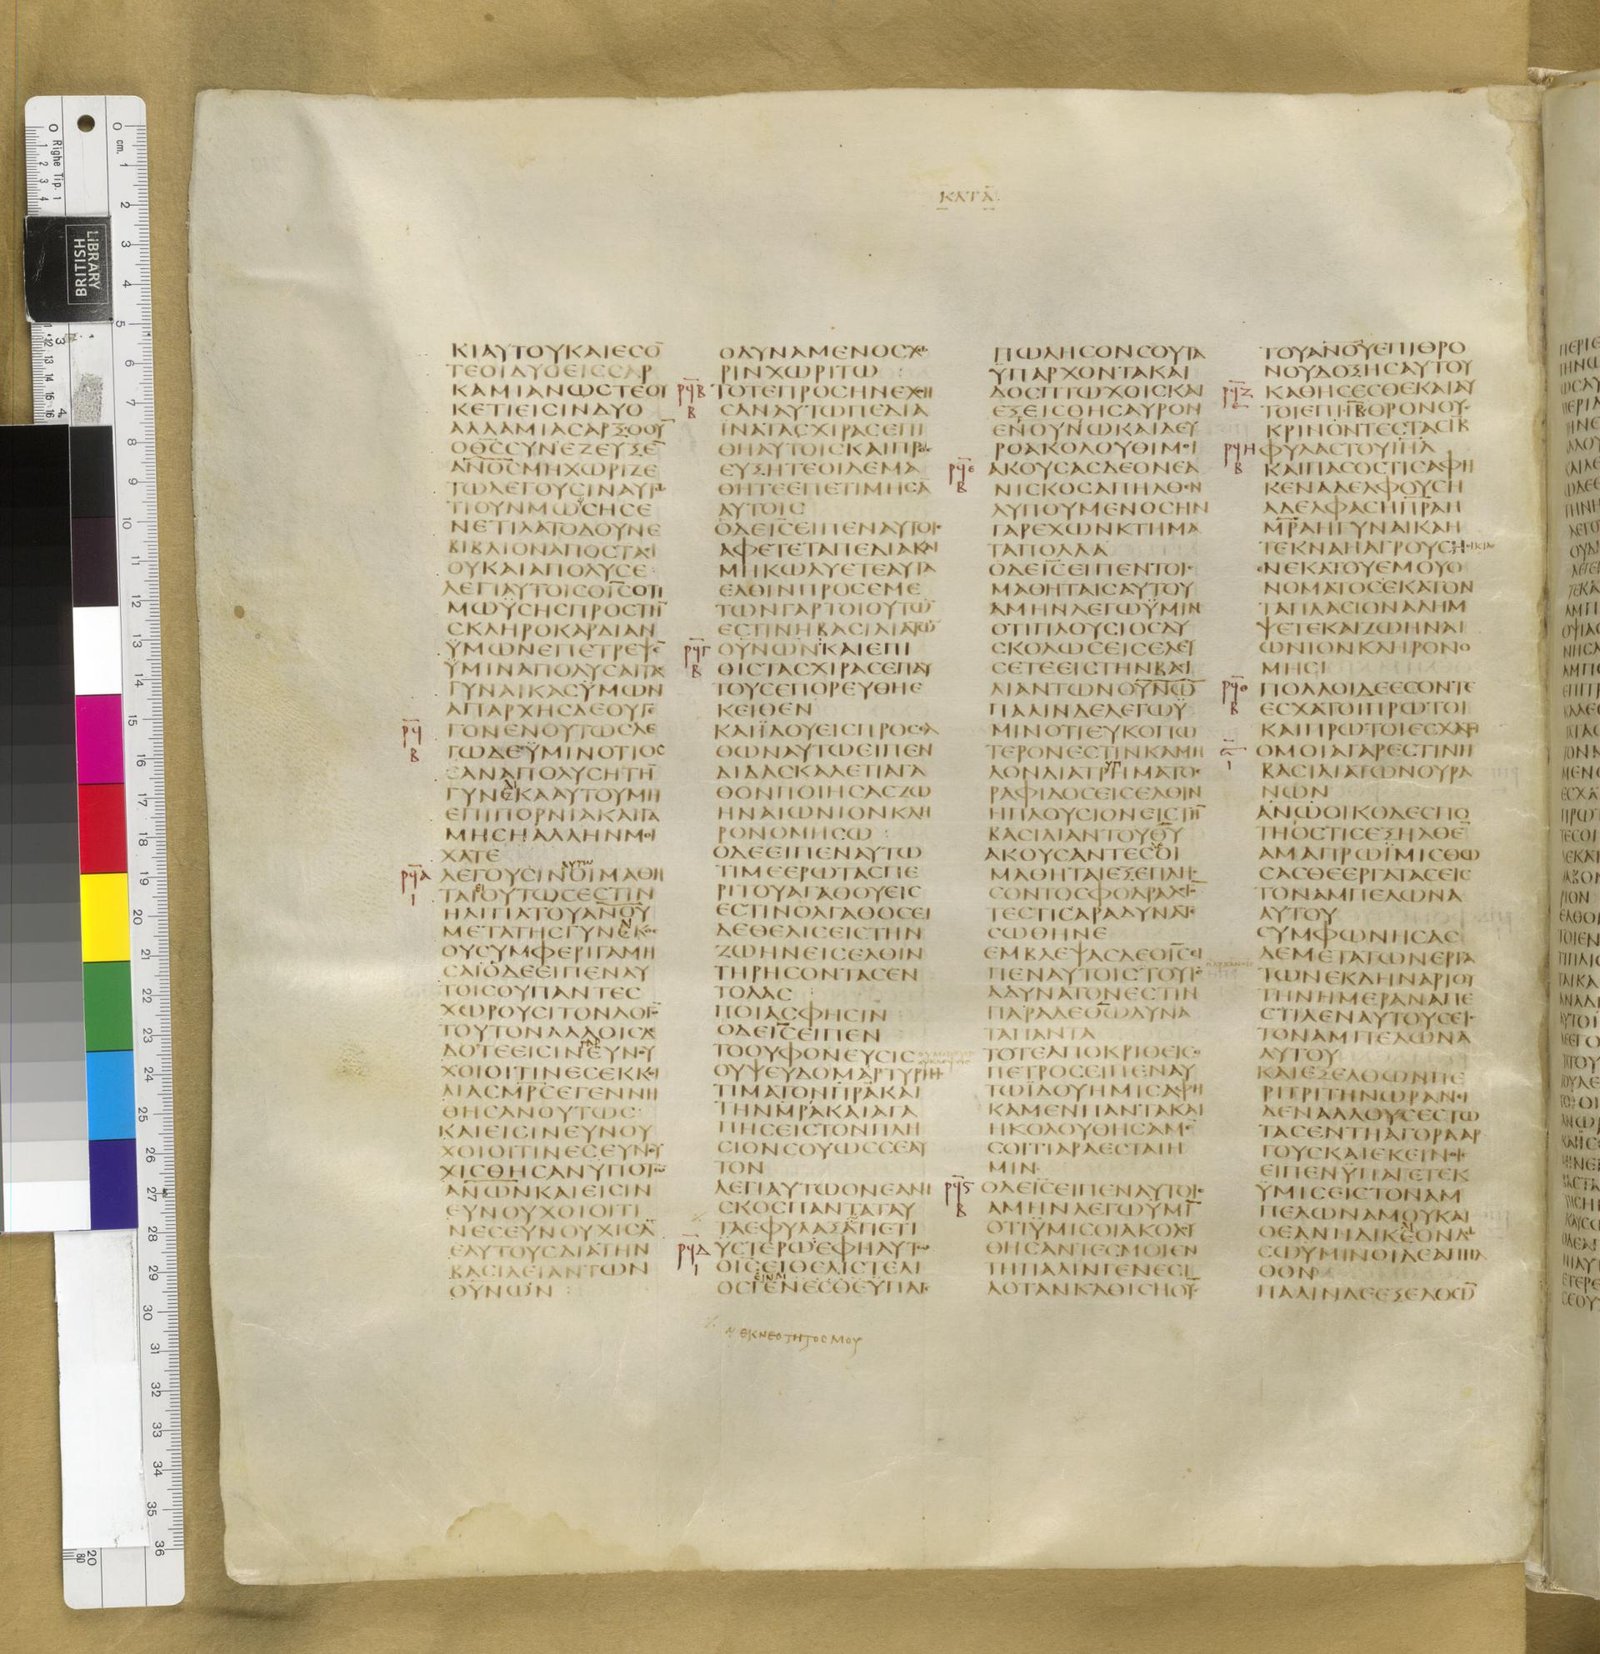 ΚΑΤΑ
ΚΙ ΑΥΤΟΥ ΚΑΙ ΕϹΟ̅
ΤΕ ΟΙ ΔΥΟ ΕΙϹ ϹΑΡ
ΚΑ ΜΙΑΝ ΩϹΤΕ ΟΥ
ΚΕΤΙ ΕΙϹΙΝ ΔΥΟ
ΑΛΛΑ ΜΙΑ ϹΑΡΞ Ο ΟΥ̅
Ο Θ̅Ϲ̅ ϹΥΝΕΖΕΥΞΕ̅
ΑΝ̅Ο̅Ϲ̅ ΜΗ ΧΩΡΙΖΕ
ΤΩ ΛΕΓΟΥϹΙΝ ΑΥΤΩ
ΤΙ ΟΥΝ ΜΩΫϹΗϹ Ε
ΝΕΤΙΛΑΤΟ ΔΟΥΝΕ
ΒΙΒΛΙΟΝ ΑΠΟϹΤΑϹΙ
ΟΥ ΚΑΙ ΑΠΟΛΥϹΕ
ΛΕΓΙ ΑΥΤΟΙϹ Ο Ι̅Ϲ̅ ΟΤΙ
ΜΩΫϹΗϹ ΠΡΟϹ ΤΗ̅
ϹΚΛΗΡΟΚΑΡΔΙΑΝ
ΫΜΩΝ ΕΠΕΤΡΕΨΕ̅
ΫΜΙΝ ΑΠΟΛΥϹΑΙ ΤΑϹ
ΓΥΝΑΙΚΑϹ ΫΜΩΝ
ΑΠ ΑΡΧΗϹ ΔΕ ΟΥ ΓΕ
Ρ̅Ϟ̅ Β
ΓΟΝΕΝ ΟΥΤΩϹ ΛΕ
ΓΩ ΔΕ ΫΜΙΝ ΟΤΙ ΟϹ
ΕΑΝ ΑΠΟΛΥϹΗ ΤΗ̅
ΓΥΝΕΚΑ ΑΥΤΟΥ ΜΗ
ΕΠΙ ΠΟΡΝΙΑ ΚΑΙ ΓΑ
ΜΗϹΗ ΑΛΛΗΝ ΜΟΙ
ΧΑΤΕ
Ρ̅Ϟ̅Α̅ Ι
ΛΕΓΟΥϹΙΝ ΑΥΤΩ ΟΙ ΜΑΘΗ
ΤΑΙ ΕΙ ΟΥΤΩϹ ΕϹΤΙΝ
Η ΑΙΤΙΑ ΤΟΥ ΑΝ̅Ο̅Υ̅
ΜΕΤΑ ΤΗϹ ΓΥΝΕΚΟϹ
ΟΥ ϹΥΜΦΕΡΙ ΓΑΜΗ
ϹΑΙ Ο ΔΕ ΕΙΠΕΝ ΑΥ
ΤΟΙϹ ΟΥ ΠΑΝΤΕϹ
ΧΩΡΟΥϹΙ ΤΟΝ ΛΟΓΟ̅
ΤΟΥΤΟΝ ΑΛΛ ΟΙϹ ΔΕ
ΔΟΤΕ ΕΙϹΙΝ ΓΑΡ ΕΥΝΟΥ
ΧΟΙ ΟΙΤΙΝΕϹ ΕΚ ΚΟΙ
ΛΙΑϹ Μ̅Ρ̅Ϲ̅ ΕΓΕΝΝΗ
ΘΗϹΑΝ ΟΥΤΩϹ
ΚΑΙ ΕΙϹΙΝ ΕΥΝΟΥ
ΧΟΙ ΟΙΤΙΝΕϹ ΕΥΝΟΥ
ΧΙϹΘΗϹΑΝ ΫΠΟ ΤΩ̅
ΑΝ̅Ω̅Ν̅ ΚΑΙ ΕΙϹΙΝ
ΕΥΝΟΥΧΟΙ ΟΙΤΙ
ΝΕϹ ΕΥΝΟΥΧΙϹΑ̅
ΕΑΥΤΟΥϹ ΔΙΑ ΤΗΝ
ΒΑϹΙΛΕΙΑΝ ΤΩΝ
ΟΥΝΩΝ
Ο ΔΥΝΑΜΕΝΟϹ ΧΩ
ΡΙΝ ΧΩΡΙΤΩ
Ρ̅Ϟ̅Β̅ Β
ΤΟΤΕ ΠΡΟϹΗΝΕΧΘΗ
ϹΑΝ ΑΥΤΩ ΠΕΔΙΑ
ΙΝΑ ΤΑϹ ΧΙΡΑϹ ΕΠΙ
ΘΗ ΑΥΤΟΙϹ ΚΑΙ ΠΡΟϹ
ΕΥΞΗΤΕ ΟΙ ΔΕ ΜΑ
ΘΗΤΕ ΕΠΕΤΙΜΗϹΑ̅
ΑΥΤΟΙϹ
Ο ΔΕ Ι̅Ϲ̅ ΕΙΠΕΝ ΑΥΤΟΙϹ
ΑΦΕΤΕ ΤΑ ΠΕΔΙΑ ΚΑΙ
ΜΗ ΚΩΛΥΕΤΕ ΑΥΤΑ
ΕΛΘΙΝ ΠΡΟϹ ΕΜΕ
ΤΩΝ ΓΑΡ ΤΟΙΟΥΤΩ̅
ΕϹΤΙΝ Η ΒΑϹΙΛΙΑ ΤΩ̅
ΟΥΝΩΝ ΚΑΙ ΕΠΙ
Ρ̅Ϟ̅Γ̅ Β
ΘΙϹ ΤΑϹ ΧΙΡΑϹ ΕΠ ΑΥ
ΤΟΥϹ ΕΠΟΡΕΥΘΗ Ε
ΚΕΙΘΕΝ
ΚΑΙ ΪΔΟΥ ΕΙϹ ΠΡΟϹΕΛ
ΘΩΝ ΑΥΤΩ ΕΙΠΕΝ
ΔΙΔΑϹΚΑΛΕ ΤΙ ΑΓΑ
ΘΟΝ ΠΟΙΗϹΑϹ ΖΩ
ΗΝ ΑΙΩΝΙΟΝ ΚΛΗ
ΡΟΝΟΜΗϹΩ
Ο ΔΕ ΕΙΠΕΝ ΑΥΤΩ
ΤΙ ΜΕ ΕΡΩΤΑϹ ΠΕ
ΡΙ ΤΟΥ ΑΓΑΘΟΥ ΕΙϹ
ΕϹΤΙΝ Ο ΑΓΑΘΟϹ ΕΙ
ΔΕ ΘΕΛΕΙϹ ΕΙϹ ΤΗΝ
ΖΩΗΝ ΕΙϹΕΛΘΙΝ
ΤΗΡΗϹΟΝ ΤΑϹ ΕΝ
ΤΟΛΑϹ
ΠΟΙΑϹ ΦΗϹΙΝ
Ο ΔΕ Ι̅Ϲ̅ ΕΙΠΕΝ
ΤΟ ΟΥ ΦΟΝΕΥϹΙϹ
ΟΥ ΨΕΥΔΟΜΑΡΤΥΡΗ
ΤΙΜΑ ΤΟΝ Π̅Ρ̅Α̅ ΚΑΙ
ΤΗΝ Μ̅Ρ̅Α̅ ΚΑΙ ΑΓΑ
ΠΗϹΕΙϹ ΤΟΝ ΠΛΗ
ϹΙΟΝ ϹΟΥ ΩϹ ϹΕΑΥ
ΤΟΝ
ΛΕΓΙ ΑΥΤΩ Ο ΝΕΑΝΙ
ϹΚΟϹ ΠΑΝΤΑ ΤΑΥ
ΤΑ ΕΦΥΛΑΞΑ ΤΙ ΕΤΙ
Ρ̅Ϟ̅Δ̅ Ι
ΥϹΤΕΡΩ ΕΦΗ ΑΥΤΩ
Ο Ι̅Ϲ̅ ΕΙ ΘΕΛΙϹ ΤΕΛΙ
ΟϹ ΕΙΝΑΙ ΓΕΝΕϹΘΕ ΫΠΑΓΕ
ΕΚ ΝΕΟΤΗΤΟϹ ΜΟΥ
ΠΩΛΗϹΟΝ ϹΟΥ ΤΑ
ΫΠΑΡΧΟΝΤΑ ΚΑΙ
ΔΟϹ ΠΤΩΧΟΙϹ ΚΑΙ
ΕΞΕΙϹ ΘΗϹΑΥΡΟΝ
ΕΝ ΟΥΝΩ ΚΑΙ ΔΕΥ
ΡΟ ΑΚΟΛΟΥΘΙ ΜΟΙ
Ρ̅Ϟ̅Ε̅ Β
ΑΚΟΥϹΑϹ ΔΕ Ο ΝΕΑ
ΝΙϹΚΟϹ ΑΠΗΛΘΕΝ
ΛΥΠΟΥΜΕΝΟϹ ΗΝ
ΓΑΡ ΕΧΩΝ ΚΤΗΜΑ
ΤΑ ΠΟΛΛΑ
Ο ΔΕ Ι̅Ϲ̅ ΕΙΠΕΝ ΤΟΙϹ
ΜΑΘΗΤΑΙϹ ΑΥΤΟΥ
ΑΜΗΝ ΛΕΓΩ ΫΜΙΝ
ΟΤΙ ΠΛΟΥϹΙΟϹ ΔΥ
ϹΚΟΛΩϹ ΕΙϹΕΛΕΥ
ϹΕΤΕ ΕΙϹ ΤΗΝ ΒΑϹΙ
ΛΙΑΝ ΤΩΝ ΟΥ̅Ν̅Ω̅
ΠΑΛΙΝ ΔΕ ΛΕΓΩ Ϋ
ΜΙΝ ΟΤΙ ΕΥΚΟΠΩ
ΤΕΡΟΝ ΕϹΤΙΝ ΚΑΜΗ
ΛΟΝ ΔΙΑ ΤΡΥΠΗΜΑΤΟϹ
ΡΑΦΙΔΟϹ ΕΙϹΕΛΘΙΝ
Η ΠΛΟΥϹΙΟΝ ΕΙϹ ΤΗ̅
ΒΑϹΙΛΙΑΝ ΤΟΥ Θ̅Υ̅
ΑΚΟΥϹΑΝΤΕϹ ΔΕ ΟΙ
ΜΑΘΗΤΑΙ ΕΞΕΠΛΗϹ
ϹΟΝΤΟ ϹΦΟΔΡΑ ΛΕΓΟ̅
ΤΕϹ ΤΙϹ ΑΡΑ ΔΥΝΑΤΕ
ϹΩΘΗΝΕ
ΕΜΒΛΕΨΑϹ ΔΕ Ο Ι̅Ϲ̅ ΕΙ
ΠΕΝ ΑΥΤΟΙϹ ΤΟΥΤΟ
ΑΔΥΝΑΤΟΝ ΕϹΤΙΝ
ΠΑΡΑ ΔΕ Θ̅Ω̅ ΔΥΝΑ
ΤΑ ΠΑΝΤΑ
ΤΟΤΕ ΑΠΟΚΡΙΘΕΙϹ Ο
ΠΕΤΡΟϹ ΕΙΠΕΝ ΑΥ
ΤΩ ΪΔΟΥ ΗΜΙϹ ΑΦΗ
ΚΑΜΕΝ ΠΑΝΤΑ ΚΑΙ
ΗΚΟΛΟΥΘΗϹΑΜΕΝ
ϹΟΙ ΤΙ ΑΡΑ ΕϹΤΑΙ Η
ΜΙΝ
Ρ̅Ϟ̅Ϛ̅ Β
Ο ΔΕ Ι̅Ϲ̅ ΕΙΠΕΝ ΑΥΤΟΙϹ
ΑΜΗΝ ΛΕΓΩ ΥΜΙ̅
ΟΤΙ ΫΜΙϹ ΟΙ ΑΚΟΛΟΥ
ΘΗϹΑΝΤΕϹ ΜΟΙ ΕΝ
ΤΗ ΠΑΛΙΝΓΕΝΕϹΙ
Α ΟΤΑΝ ΚΑΘΙϹΗ Ο ΥϹ̅
ΤΟΥ ΑΝ̅Ο̅Υ̅ ΕΠΙ ΘΡΟ
ΝΟΥ ΔΟΞΗϹ ΑΥΤΟΥ
Ρ̅Ϟ̅Ζ̅
ΚΑΘΗϹΕϹΘΕ ΚΑΙ ΑΥ
ΤΟΙ ΕΠΙ Ι̅Β̅ ΘΡΟΝΟΥϹ
ΚΡΙΝΟΝΤΕϹ ΤΑϹ Ι̅Β̅
Ρ̅Ϟ̅Η̅ Β
ΦΥΛΑϹ ΤΟΥ Ι̅Η̅Λ̅
ΚΑΙ ΠΑϹ ΟϹΤΙϹ ΑΦΗ
ΚΕΝ ΑΔΕΛΦΟΥϹ Η
ΑΔΕΛΦΑϹ Η Π̅Ρ̅Α̅ Η
Μ̅Ρ̅Α̅ Η ΓΥΝΑΙΚΑ Η
ΤΕΚΝΑ Η ΑΓΡΟΥϹ Η ΟΙΚΙΑϹ
ΕΝΕΚΑ ΤΟΥ ΕΜΟΥ Ο
ΝΟΜΑΤΟϹ ΕΚΑΤΟΝ
ΤΑΠΛΑϹΙΟΝΑ ΛΗΜ
ΨΕΤΕ ΚΑΙ ΖΩΗΝ ΑΙ
ΩΝΙΟΝ ΚΛΗΡΟΝΟ
ΜΗϹΙ
Ρ̅Ϟ̅Θ̅ Β
ΠΟΛΛΟΙ ΔΕ ΕϹΟΝΤΕ
ΕϹΧΑΤΟΙ ΠΡΩΤΟΙ
ΚΑΙ ΠΡΩΤΟΙ ΕϹΧΑΤΟΙ
Ϲ̅ Ι
ΟΜΟΙΑ ΓΑΡ ΕϹΤΙΝ Η
ΒΑϹΙΛΙΑ ΤΩΝ ΟΥΡΑ
ΝΩΝ
ΑΝΩ ΟΙΚΟΔΕϹΠΟ
ΤΗ ΟϹΤΙϹ ΕΞΗΛΘΕ̅
ΑΜΑ ΠΡΩΪ ΜΙϹΘΩ
ϹΑϹΘΕ ΕΡΓΑΤΑϹ ΕΙϹ
ΤΟΝ ΑΜΠΕΛΩΝΑ
ΑΥΤΟΥ
ϹΥΜΦΩΝΗϹΑϹ
ΔΕ ΜΕΤΑ ΤΩΝ ΕΡΓΑ
ΤΩΝ ΕΚ ΔΗΝΑΡΙΟΥ
ΤΗΝ ΗΜΕΡΑΝ ΑΠΕ
ϹΤΙΛΕΝ ΑΥΤΟΥϹ ΕΙϹ
ΤΟΝ ΑΜΠΕΛΩΝΑ
ΑΥΤΟΥ
ΚΑΙ ΕΞΕΛΘΩΝ ΠΕ
ΡΙ ΤΡΙΤΗΝ ΩΡΑΝ ΕΙ
ΔΕΝ ΑΛΛΟΥϹ ΕϹΤΩ
ΤΑϹ ΕΝ ΤΗ ΑΓΟΡΑ ΑΡ
ΓΟΥϹ ΚΑΙ ΕΚΕΙΝΟΙϹ
ΕΙΠΕΝ ΫΠΑΓΕΤΕ Κ
ΫΜΙϹ ΕΙϹ ΤΟΝ ΑΜ
ΠΕΛΩΝΑ ΜΟΥ ΚΑΙ
Ο ΕΑΝ Η ΔΙΚΕΟΝ ΔΩ
ϹΩ ΥΜΙΝ ΟΙ ΔΕ ΑΠΗΛ
ΘΟΝ
ΠΑΛΙΝ ΔΕ ΕΞΕΛΘΩ̅